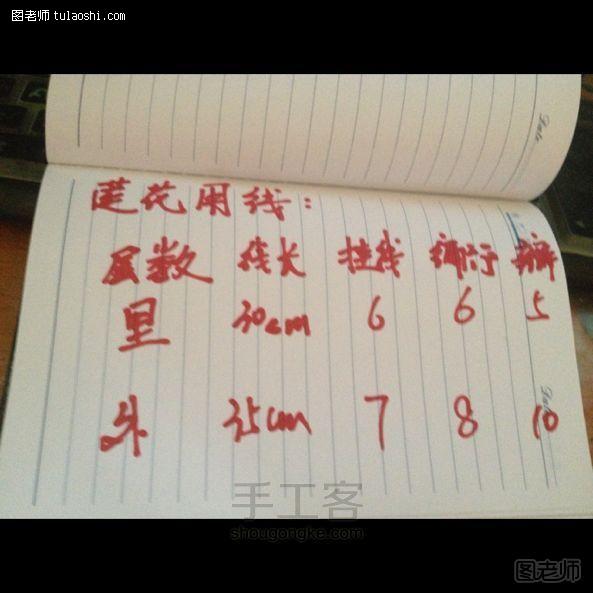 图老师 tulaoshi.com
Date
莲花用线：
层数 线长 挂线 编行 瓣
里 30cm 6 6 5
Date
外 35cm 7 8 10
手工客
shougongke.com
图老师